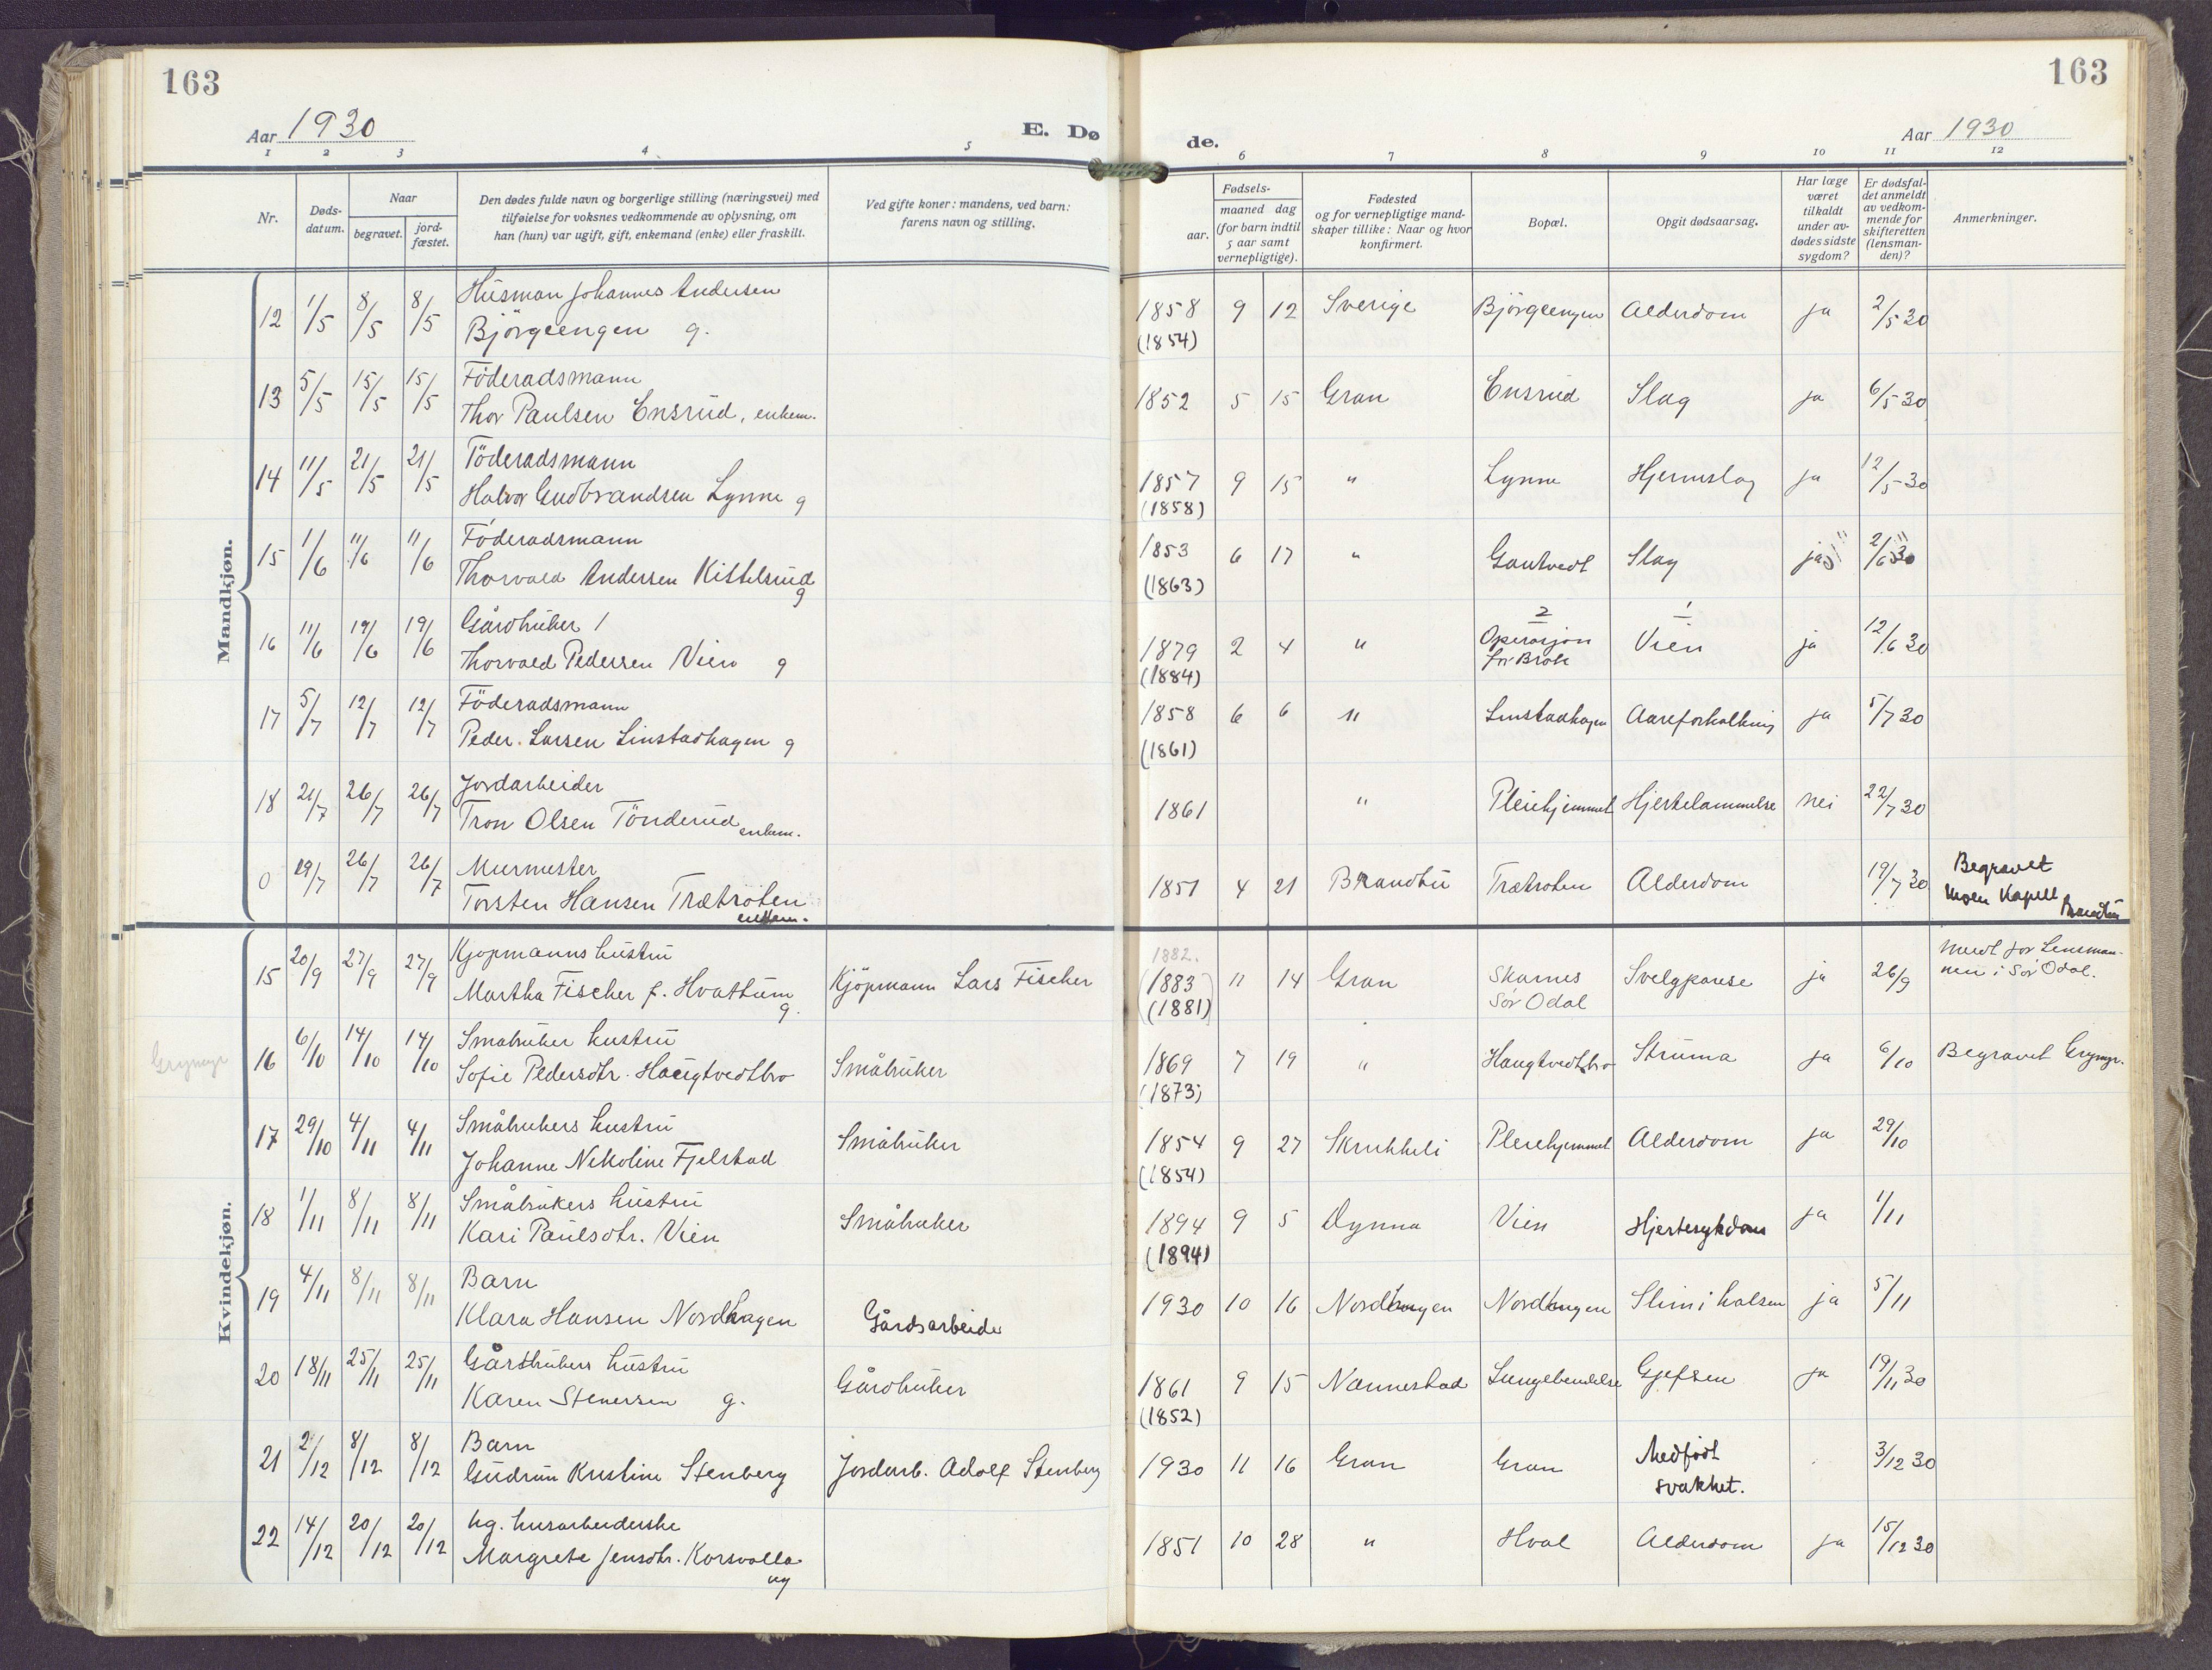 163
163
Aar 1930
E. Dø
de.
Aar 1930
1 2 3 4 5 6 7 8 9 10 11 12
Nr.
Døds-
datum.
Naar
begravet.
jord-
fæstet.
Den dødes fulde navn og borgerlige stilling (næringsvei) med
tilføielse for voksnes vedkommende av oplysning, om
han (hun) var ugift, gift, enkemand (enke) eller fraskilt.
Ved gifte koner: mandens, ved barn:
farens navn og stilling.
Fødsels-
aar.
maaned dag
(for barn indtil
5 aar samt
vernepligtige).
Fødested
og for vernepligtige mand-
skaper tillike: Naar og hvor
konfirmert.
Bopæl.
Opgit dødsaarsag.
Har læge
været
tilkaldt
under av-
dødes sidste
sygdom?
Er dødsfal-
det anmeldt
av vedkom-
mende for
skifteretten
(lensman-
den)?
Anmerkninger.
Mandkjøn.
12 1/5 8/5 8/5 Husman Johannes Andersen
Bjørgeengen g. 1858 9 12 Sverige Bjørgeengen Alderdom ja 2/5 30
(1854)
13 5/5 15/5 15/5 Föderadsmann
Thor Paulsen Ensrud, enkem. 1852 5 15 Gran Ensrud Slag ja 6/5 30
14 11/5 21/5 21/5 Föderadsmann
Halvor Gudbrandsen Lynne g 1857 9 15 " Lynne Hjerneslag ja 12/5 30
(1858)
15 1/6 11/6 11/6 Föderadsmann
Thorvald Andersen Kittelsrud g 1853 6 17 " Gautvedt Slag ja 2/6 30
(1863)
16 11/6 19/6 19/6 Gårdbruker
Thorvald Pedersen Vien g 1879 2 4 " 2 Operasjon for Brok 1 Vien ja 12/6 30
(1884)
17 5/7 12/7 12/7 Föderadsmann
Peder Larsen Linstadhagen g 1858 6 6 " Linstadhagen Aareforkalkning ja 5/7 30
(1861)
18 21/7 26/7 26/7 Jordarbeider
Tron Olsen Tönderud enkem. 1861 " Pleiehjemmet Hjertelammelse nei 22/7 30
0 19/7 26/7 26/7 Murmester
Torsten Hansen Trætroten enkem. 1851 4 21 Brandbu Trætroten Alderdom 19/7 30 Begravet
Moen Kapell Brandbu
Kvindekjøn.
15 20/9 27/9 27/9 Kjøpmanns hustru
Martha Fischer f. Hvattum g. Kjöpmann Lars Fischer 1882. (1883) (1881) 11 14 Gran Skarnes
Sör Odal Svelgparese ja 26/9 Meldt for Lensman-
nen i Sör Odal.
Grymyr
16 6/10 14/10 14/10 Småbruker hustru
Sofie Pedersdtr. Haugtvedtbro Småbruker 1869 7 19 " Haugtvedtbro Struma ja 6/10 Begravet Grymyr.
(1873)
17 29/10 4/11 4/11 Småbrukers hustru
Johanne Nikoline Fjelstad Småbruker 1854 9 27 Skrukkeli Pleiehjemmet Alderdom ja 29/10
(1854)
18 1/11 8/11 8/11 Småbrukers hustru
Kari Paulsdtr. Vien Småbruker 1894 9 5 Dynna Vien Hjertesykdom ja 1/11
(1894)
19 4/11 8/11 8/11 Barn
Klara Hansen Nordhagen Gårdsarbeider 1930 10 16 Nordhagen Nordhagen Slim i halsen ja 5/11
20 18/11 25/11 25/11 Gårdbrukers hustru
Karen Stenersen g. Gårdbruker 1861 9 15 Nannestad Lungebetendelse Gjefsen ja 19/11 30
(1852)
21 2/12 8/12 8/12 Barn
Gudrun Kristine Stenberg Jordarb. Adolf Stenberg 1930 11 16 Gran Gran Medfödt
svakhet. 3/12 30
22 14/12 20/12 20/12 ug. husarbeiderske
Margrete Jensdtr. Korsvolla ug 1851 10 28 " Hval Alderdom ja 15/12 30